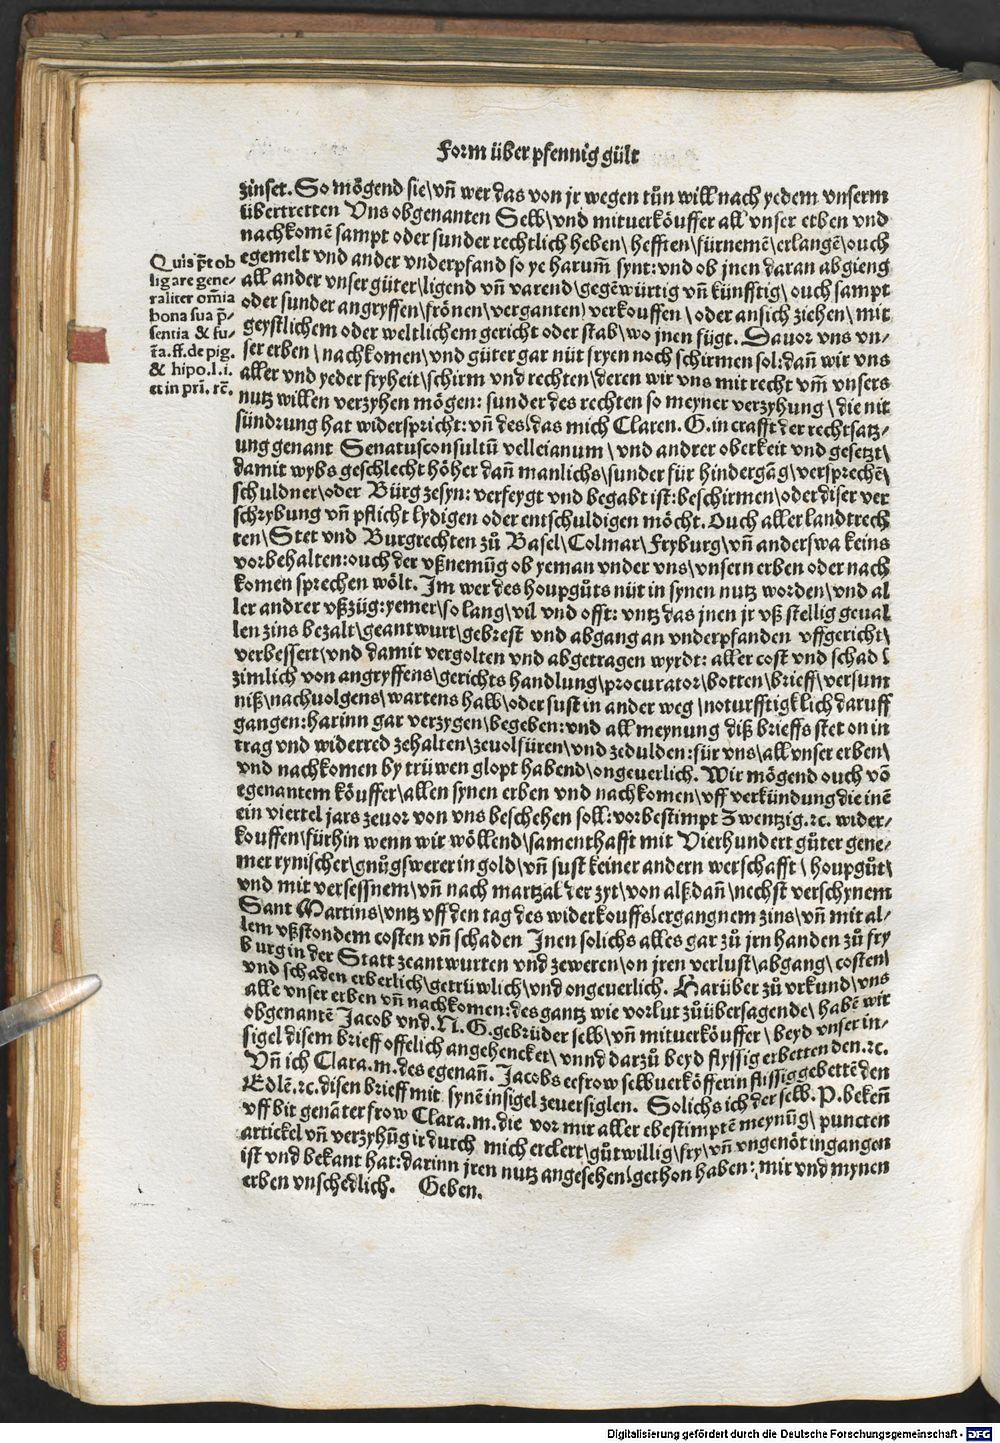 Form über pfennig gült
zinset. So mögend sie\ vñ wer das von jr wegen tůn will nach yedem vnserm
übertretten Vns obgenanten Selb\ vnd mituerköuffer all vnser erben vnd
nachkomẽ sampt oder sunder rechtlich heben\ hefften\ fürnemẽ\ erlangẽ\ ouch
egemelt vnd ander vnderpfand so ye harum̃ synt: vnd ob jnen daran abgieng
all ander vnser güter\ ligend vñ varend\ gegẽwürtig vñ künfftig\ ouch sampt
oder sunder angryffen\ frönen\ verganten\ verkouffen\ oder an sich ziehen\ mit
geystlichem oder weltlichem gericht oder stab\ wo jnen fügt. Dauor vns vn-
ser erben\ nachkomen\ vnd güter gar nüt fryen noch schirmen sol: dañ wir vns
aller vnd yeder fryheit\ schirm vnd rechten\ deren wir vns mit recht vm̃ vnsers
nutz willen verzyhen mögen: sunder des rechten so meyner verzyhung\ die nit
sündrung hat widerspricht: vñ des\ das mich Claren. G. in crafft der rechtsatz-
ung genant Senatusconsultũ velleianum\ vnd andrer oberkeit vnd gesetzt\
damit wybs geschlecht höher dañ manlichs\ sunder für hindergãg\ versprechẽ\
schuldner\ oder Bürg zesyn: verfeygt vnd begabt ist: beschirmen\ oder diser ver
schrybung vñ pflicht lydigen oder entschuldigen möcht. Ouch aller landtrech
ten\ Stet vnd Burgrechten zů Basel\ Colmar\ Fryburg\ vñ anderswa keins
vorbehalten: ouch der vßnemũg ob yeman vnder vns\ vnsern erben oder nach
komen sprechen wölt. Im wer des houpgůts nüt in synen nutz worden\ vnd al
ler andrer vßzüg: yemer\ so lang\ vil vnd offt: vntz das jnen jr vß stellig geual
len zins bezalt\ geantwurt\ gebrest vnd abgang an vnderpfanden vffgericht\
verbessert\ vnd damit vergolten vnd abgetragen wyrdt: aller cost vnd schad\
zimlich von angryffens\ gerichts handlung\ procurator\ botten\ brieff\ versum
niß\ nachuolgens\ wartens halb\ oder sust in ander weg\ noturfftigklich daruff
gangen: harinn gar verzygen\ begeben: vnd all meynung diß brieffs stet on in
trag vnd widerred zehalten\ zeuolfüren\ vnd zedulden: für vns\ all vnser erben\
vnd nachkomen by trüwen glopt habend\ ongeuerlich. Wir mögend ouch võ
egenantem köuffer\ allen synen erben vnd nachkomen\ vff verkündung die inẽ
ein viertel jars zeuor von vns beschehen soll: vorbestimpt Zwentzig. ꝛc. wider-
kouffen\ fürhin wenn wir wöllend\ samenthafft mit Vierhundert güter gene-
mer rynischer\ gnůgswerer in gold\ vñ sust keiner andern werschafft\ houpgůt\
vnd mit versessnem\ vñ nach martzal der zyt\ von alß dañ\ nechst verschynem
Sant Martins\ vntz vff den tag des widerkouffs\ ergangnem zins\ vñ mit al-
lem vßstondem costen vñ schaden Jnen solichs alles gar zů jrn handen zů fry
burg in der Statt zeantwurten vnd zeweren\ on jren verlust\ abgang\ costen\
vnd schaden erberlich\ getrüwlich\ vnd ongeuerlich. Harüber zů vrkund\ vns
alle vnser erben vñ nachkomen: des gantz wie vorlut zůübersagende\ habẽ wir
obgenantẽ Jacob vnd. N. G. gebrüder selb\ vñ mituerköuffer\ beyd vnser in-
sigel disem brieff offelich angehencket\ vnnd darzů beyd flyssig erbetten den. ꝛc.
Vñ ich Clara. m. des egenañ. Jacobs eefrow selbuerkö­fferin flissig gebettẽ den
Edlẽ. ꝛc. disen brieff mit synẽ insigel zeuersiglen. Solichs ich der selb. P. bekeñ
vff bit genãter frow Clara. m. die vor mir aller ebestimptẽ meynũg\ puncten
artickel vñ verzyhũg ir durch mich erclert\ gůtwillig\ fry\ vñ vngenöt ingangen
ist vnd bekant hat: darinn jren nutz angesehen\ gethon haben: mir vnd mynen
erben vnschedlich. Geben.
Quis p̃t ob
ligare gene-
raliter om̃ia
bona sua p̃-
sentia & fu-
t̃a. ff. de pig.
& hipo. l. i.
et in pri. rẽ.
Digitalisierung gefördert durch die Deutsche Forschungsgemeinschaft - DFG